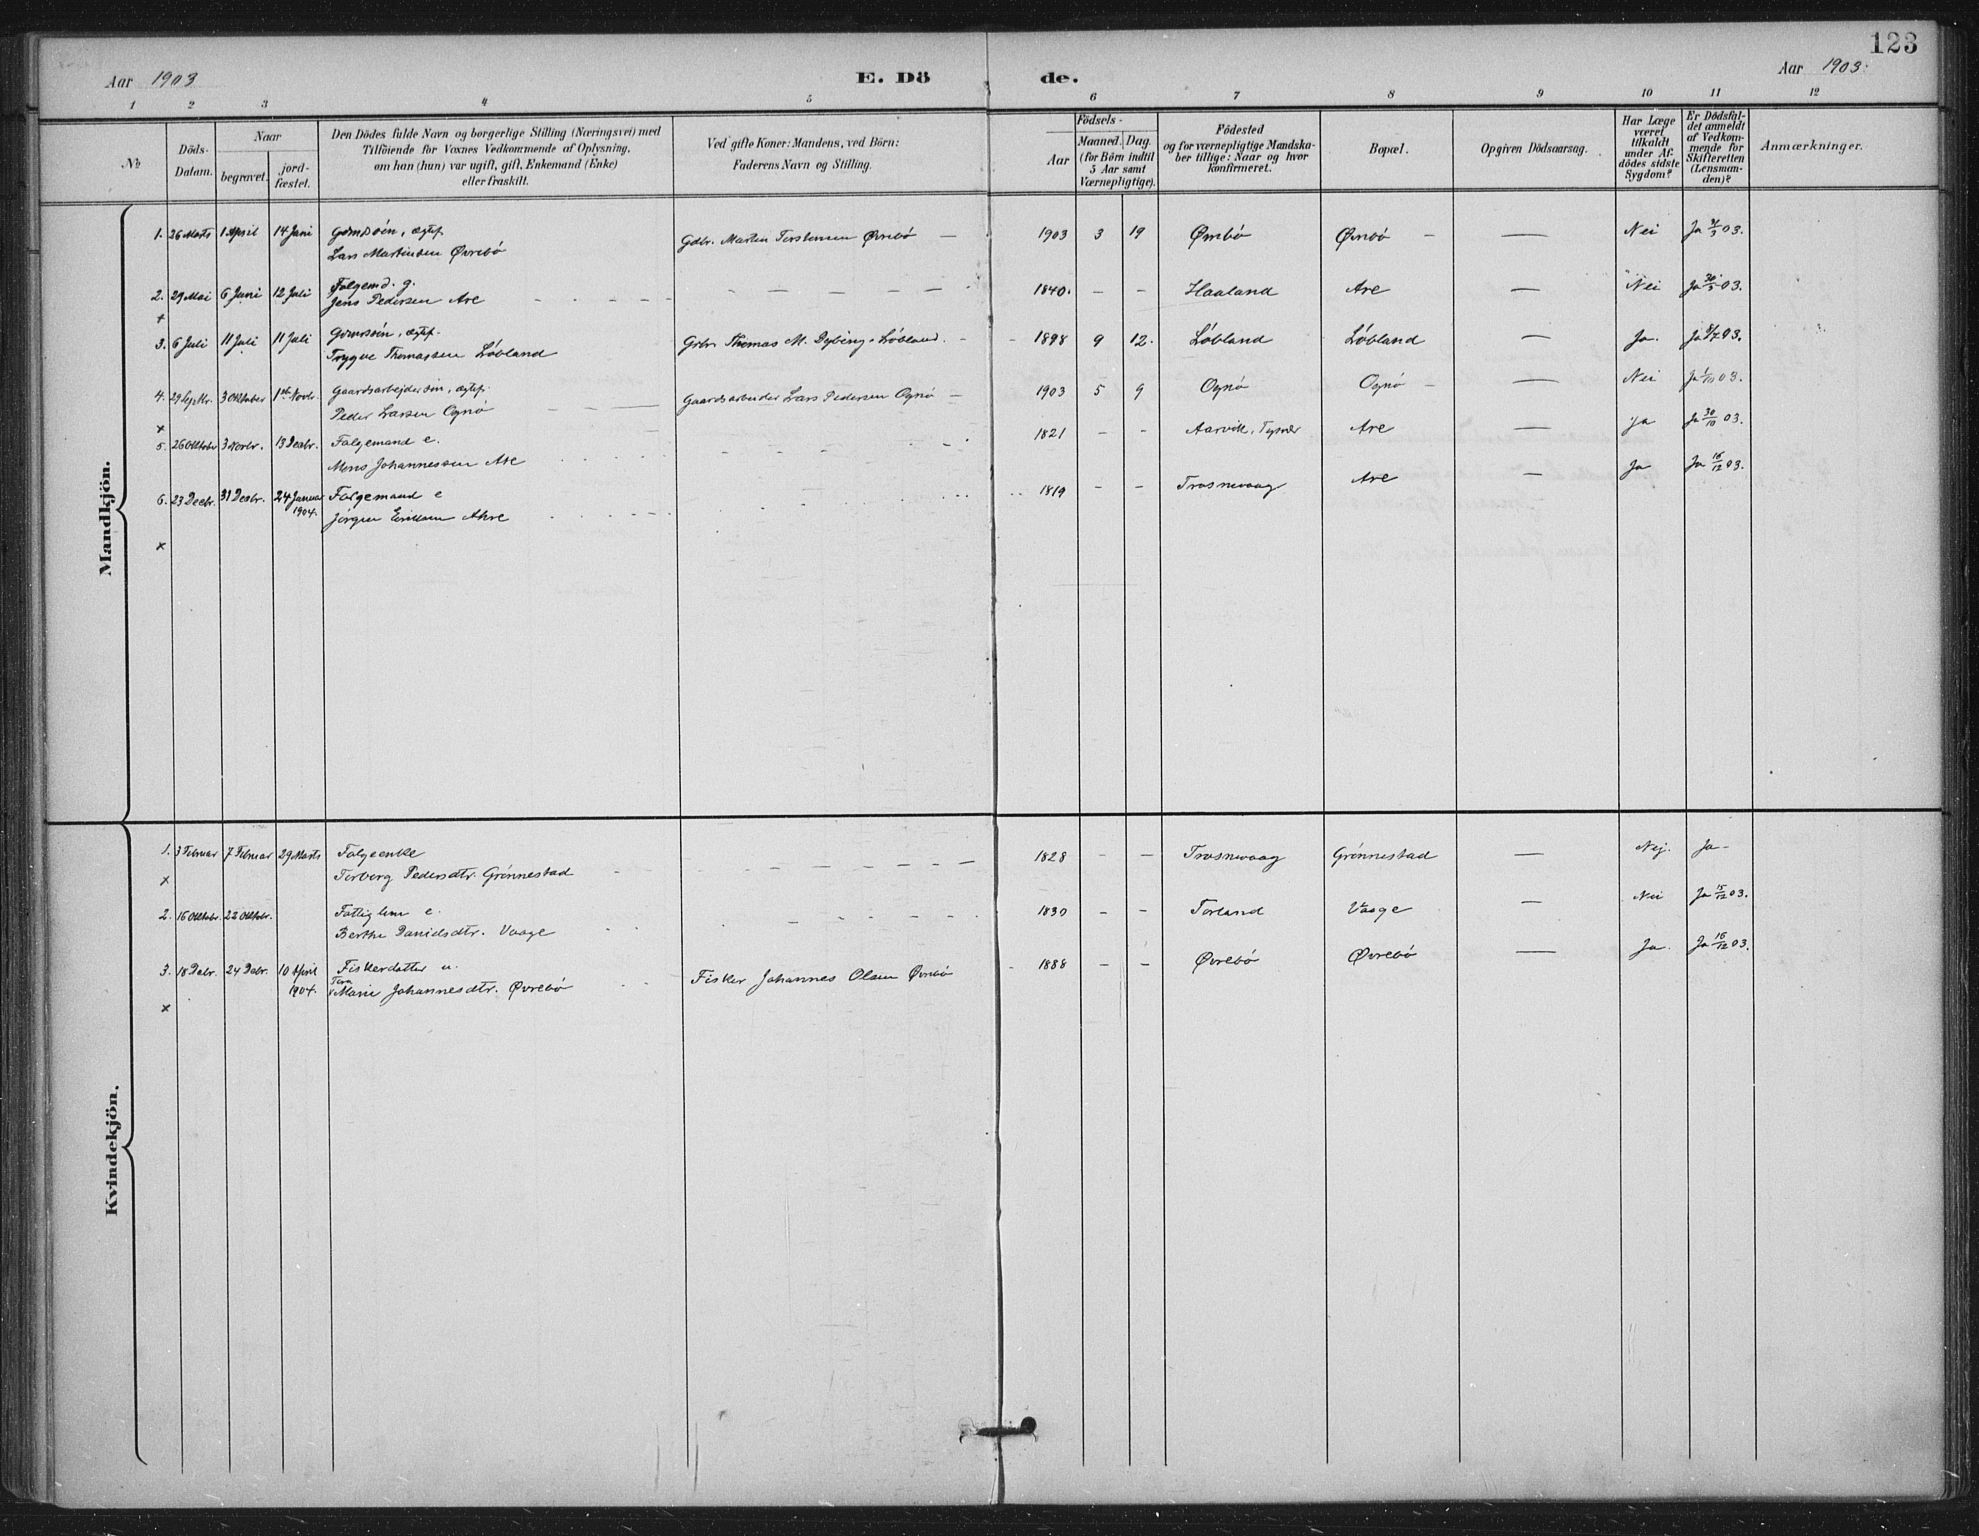 123
Aar 1903
E. Dö
de.
Aar 1903.
1 2 3 4 5 6 7 8 9 10 11 12
No
Döds-
Datum.
Naar
begravet.
jord-
fæstet.
Den Dödes fulde Navn og borgerlige Stilling (Næringsvei) med
Tilföiende for Voxnes Vedkommende af Oplysning,
om han (hun) var ugift, gift, Enkemand (Enke)
eller fraskilt.
Ved gifte Koner: Mandens, ved Börn:
Faderens Navn og Stilling.
Födsels-
Aar
Maaned. Dag.
(for Börn indtil
5 Aar samt
Værnepligtige).
Födested
og for værnepligtige Mandska-
ber tillige: Naar og hvor
konfirmeret.
Bopæl.
Opgiven Dödsaarsag.
Har Læge
været
tilkaldt
under Af-
dödes sidste
Sygdom?
Er Dödsfal-
det anmeldt
af Vedkom-
mende for
Skifteretten
(Lensman-
den)?
Anmærkninger.
Mandkjön.
1. 26 Marts 1 April 14 Juni Gdmdsøn, ægtef. Gdbr. Martin Torstensen Øvrebö — 1903 3 19 Øvrebö Øvrebö — — Nei Ja 31/3 03.
Lars Martinsen Øvrebö
2. 29 Mai 6 Juni 12 Juli Folgemd. g. 1840. – – Haaland Are — Nei Ja 30/5 03.
Jens Pedersen Are
+
3. 6 Juli 11 Juli 11 Juli Gdmdsøn, ægtef. Gdbr. Thomas M. Dybing, Løbland. 1898 9 12. Løbland Løbland — Ja. Ja 8/7 03.
Trygve Thomassen Løbland
4. 29 Septbr. 3 Oktober 1ste Novbr. Gaardsarbejdersön, ægtef. Gaardsarbeider Lars Pedersen Ognö — 1903 5 9 Ognö Ognö — — Nei Ja 1/10 03.
Peder Larsen Ognö
x
5. 26 Oktober 3 Novbr. 13 Decbr. Folgemand e. 1821 – – Aarvik, Tysvær Are — Ja Ja 30/10 03.
Mons Johannessen Are
6. 23 Decbr. 31 Decbr. 24 Januar 1904. Folgemand e 1819 – – Trosnevaag Are — Ja Ja 16/12 03.
Jörgen Eriksen Ahre
x
Kvindekjön.
1. 3 Februar 7 Februar 29 Marts Folgeenke 1828 – — Trosnevaag Grönnestad — Nej. Ja –
Torborg Pedersdtr. Grönnestad
x
2. 16 Oktobr. 22 Oktobr. Fattiglem e. 1830 – – Torland Vaage — Nei Ja 15/12 03.
Berthe Danielsdtr. Vaage
3. 18 Debr. 24 Debr. 10 April 1904. Fiskerdatter u. Fisker Johannes Olsen Øvrebö 1888 – – Øvrebö Øvrebö — Ja. Ja 16/12 03.
Tora
Marie Johannesdtr. Øvrebö
x